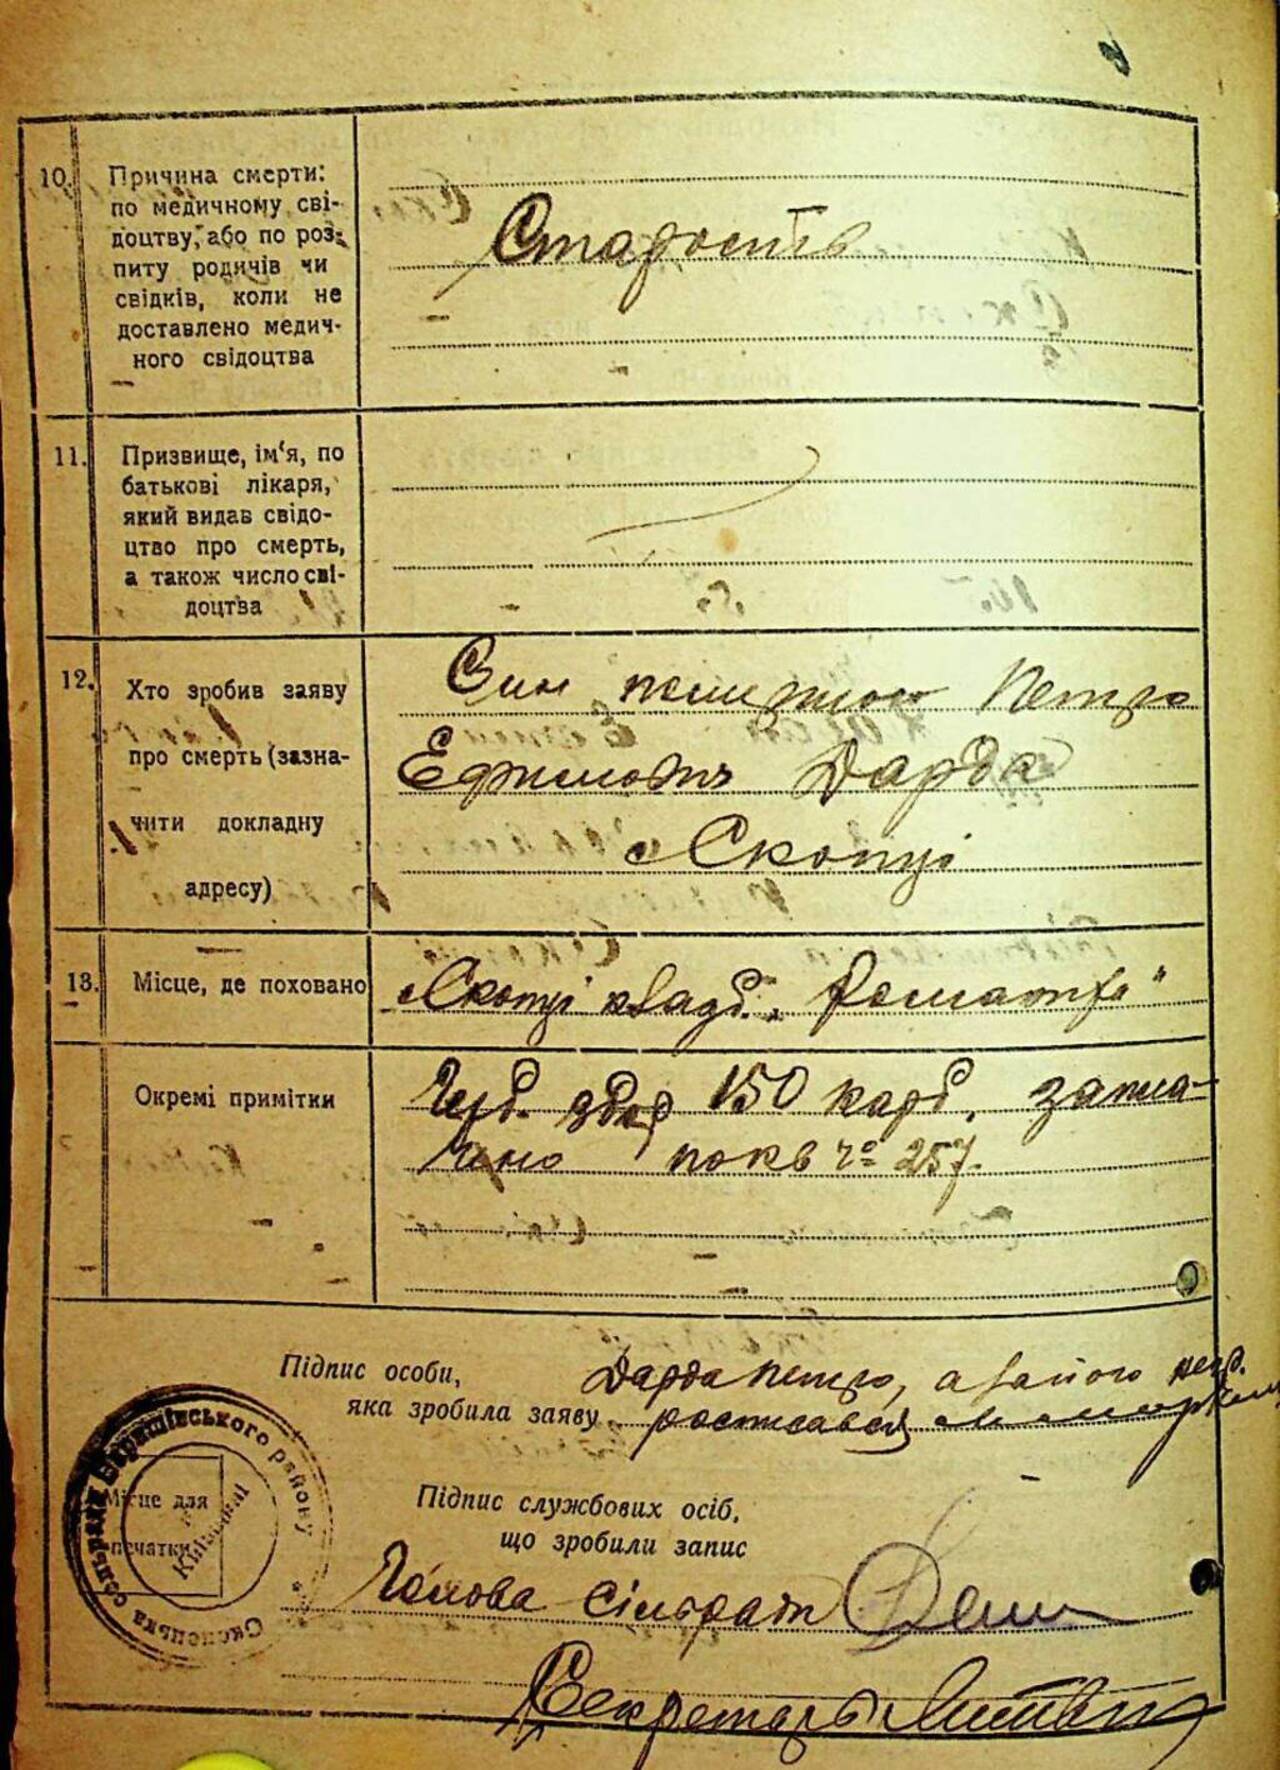 10. Причина смерти:
по медичному сві-
доцтву, або по роз-
питу родичів чи
свідків, коли не
доставлено медич-
ного свідоцтва
Старость
11. Призвище, ім'я, по
батькові лікаря,
який видав свідо-
цтво про смерть,
а також число сві-
доцтва
12. Хто зробив заяву
про смерть (зазна-
чити докладну
адресу)
Син Петро
Ефимовіч Дарда
с Скопці
13. Місце, де поховано
с Скопці кладб.
Окремі примітки
150 карб. запла-
чено по кв № 257.
Підпис особи,
яка зробила заяву
Дарда Петро, а за його негр.
росписався
Місце для
печатки
Скопецька сільрада Баришівського району
Підпис службових осіб,
що зробили запис
Голова сільради
Секретарь Литвин